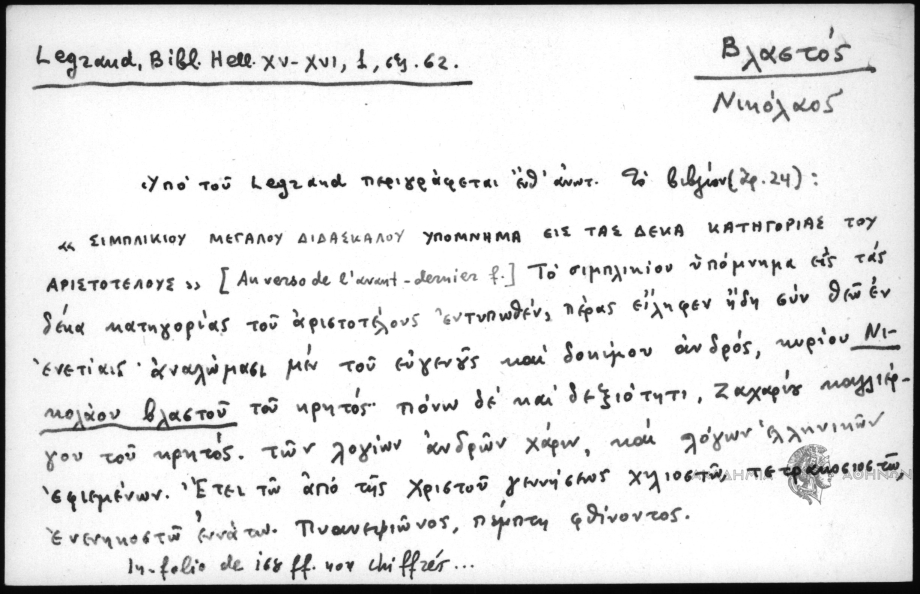 Legrand, Bibl. Hell. XV-XVI, 1, σελ. 62.
Βλαστός
Νικόλαος
Ὑπὸ τοῦ Legrand περιγράφεται ἐνθ' ἀνωτ. τὸ βιβλίον (Ἀρ. 24) :
« ΣΙΜΠΛΙΚΙΟΥ ΜΕΓΑΛΟΥ ΔΙΔΑΣΚΑΛΟΥ ΥΠΟΜΝΗΜΑ ΕΙΣ ΤΑΣ ΔΕΚΑ ΚΑΤΗΓΟΡΙΑΣ ΤΟΥ
ΑΡΙΣΤΟΤΕΛΟΥΣ » [Au verso de l'avant-dernier f.] Τὸ σιμπλικίου ὑπόμνημα εἰς τὰς
δέκα κατηγορίας τοῦ ἀριστοτέλους ἐντυπωθὲν, πέρας εἴληφεν ἤδη σὺν θεῷ ἐν
ἐνετίαις· ἀναλώμασι μὲν τοῦ εὐγενοῦς καὶ δοκίμου ἀνδρὸς, κυρίου Νι-
κολάου βλαστοῦ τοῦ κρητός· πόνω δὲ καὶ δεξιότητι, Ζαχαρίου καλλιέρ-
γου τοῦ κρητός. τῶν λογίων ἀνδρῶν χάριν, καὶ λόγων ἑλληνικῶν
ἐφιεμένων. Ἔτει τῶ ἀπὸ τῆς Χριστοῦ γεννήσεως χιλιοστῶ, τετρακοσιοστῶ,
ἐνενηκοστῶ ἐννάτω. Πυανεψιῶνος, πέμπτη φθίνοντος.
In-folio de 168 ff. non chiffrés...
ΑΚΑΔΗΜΙΑ ΑΘΗΝΩΝ